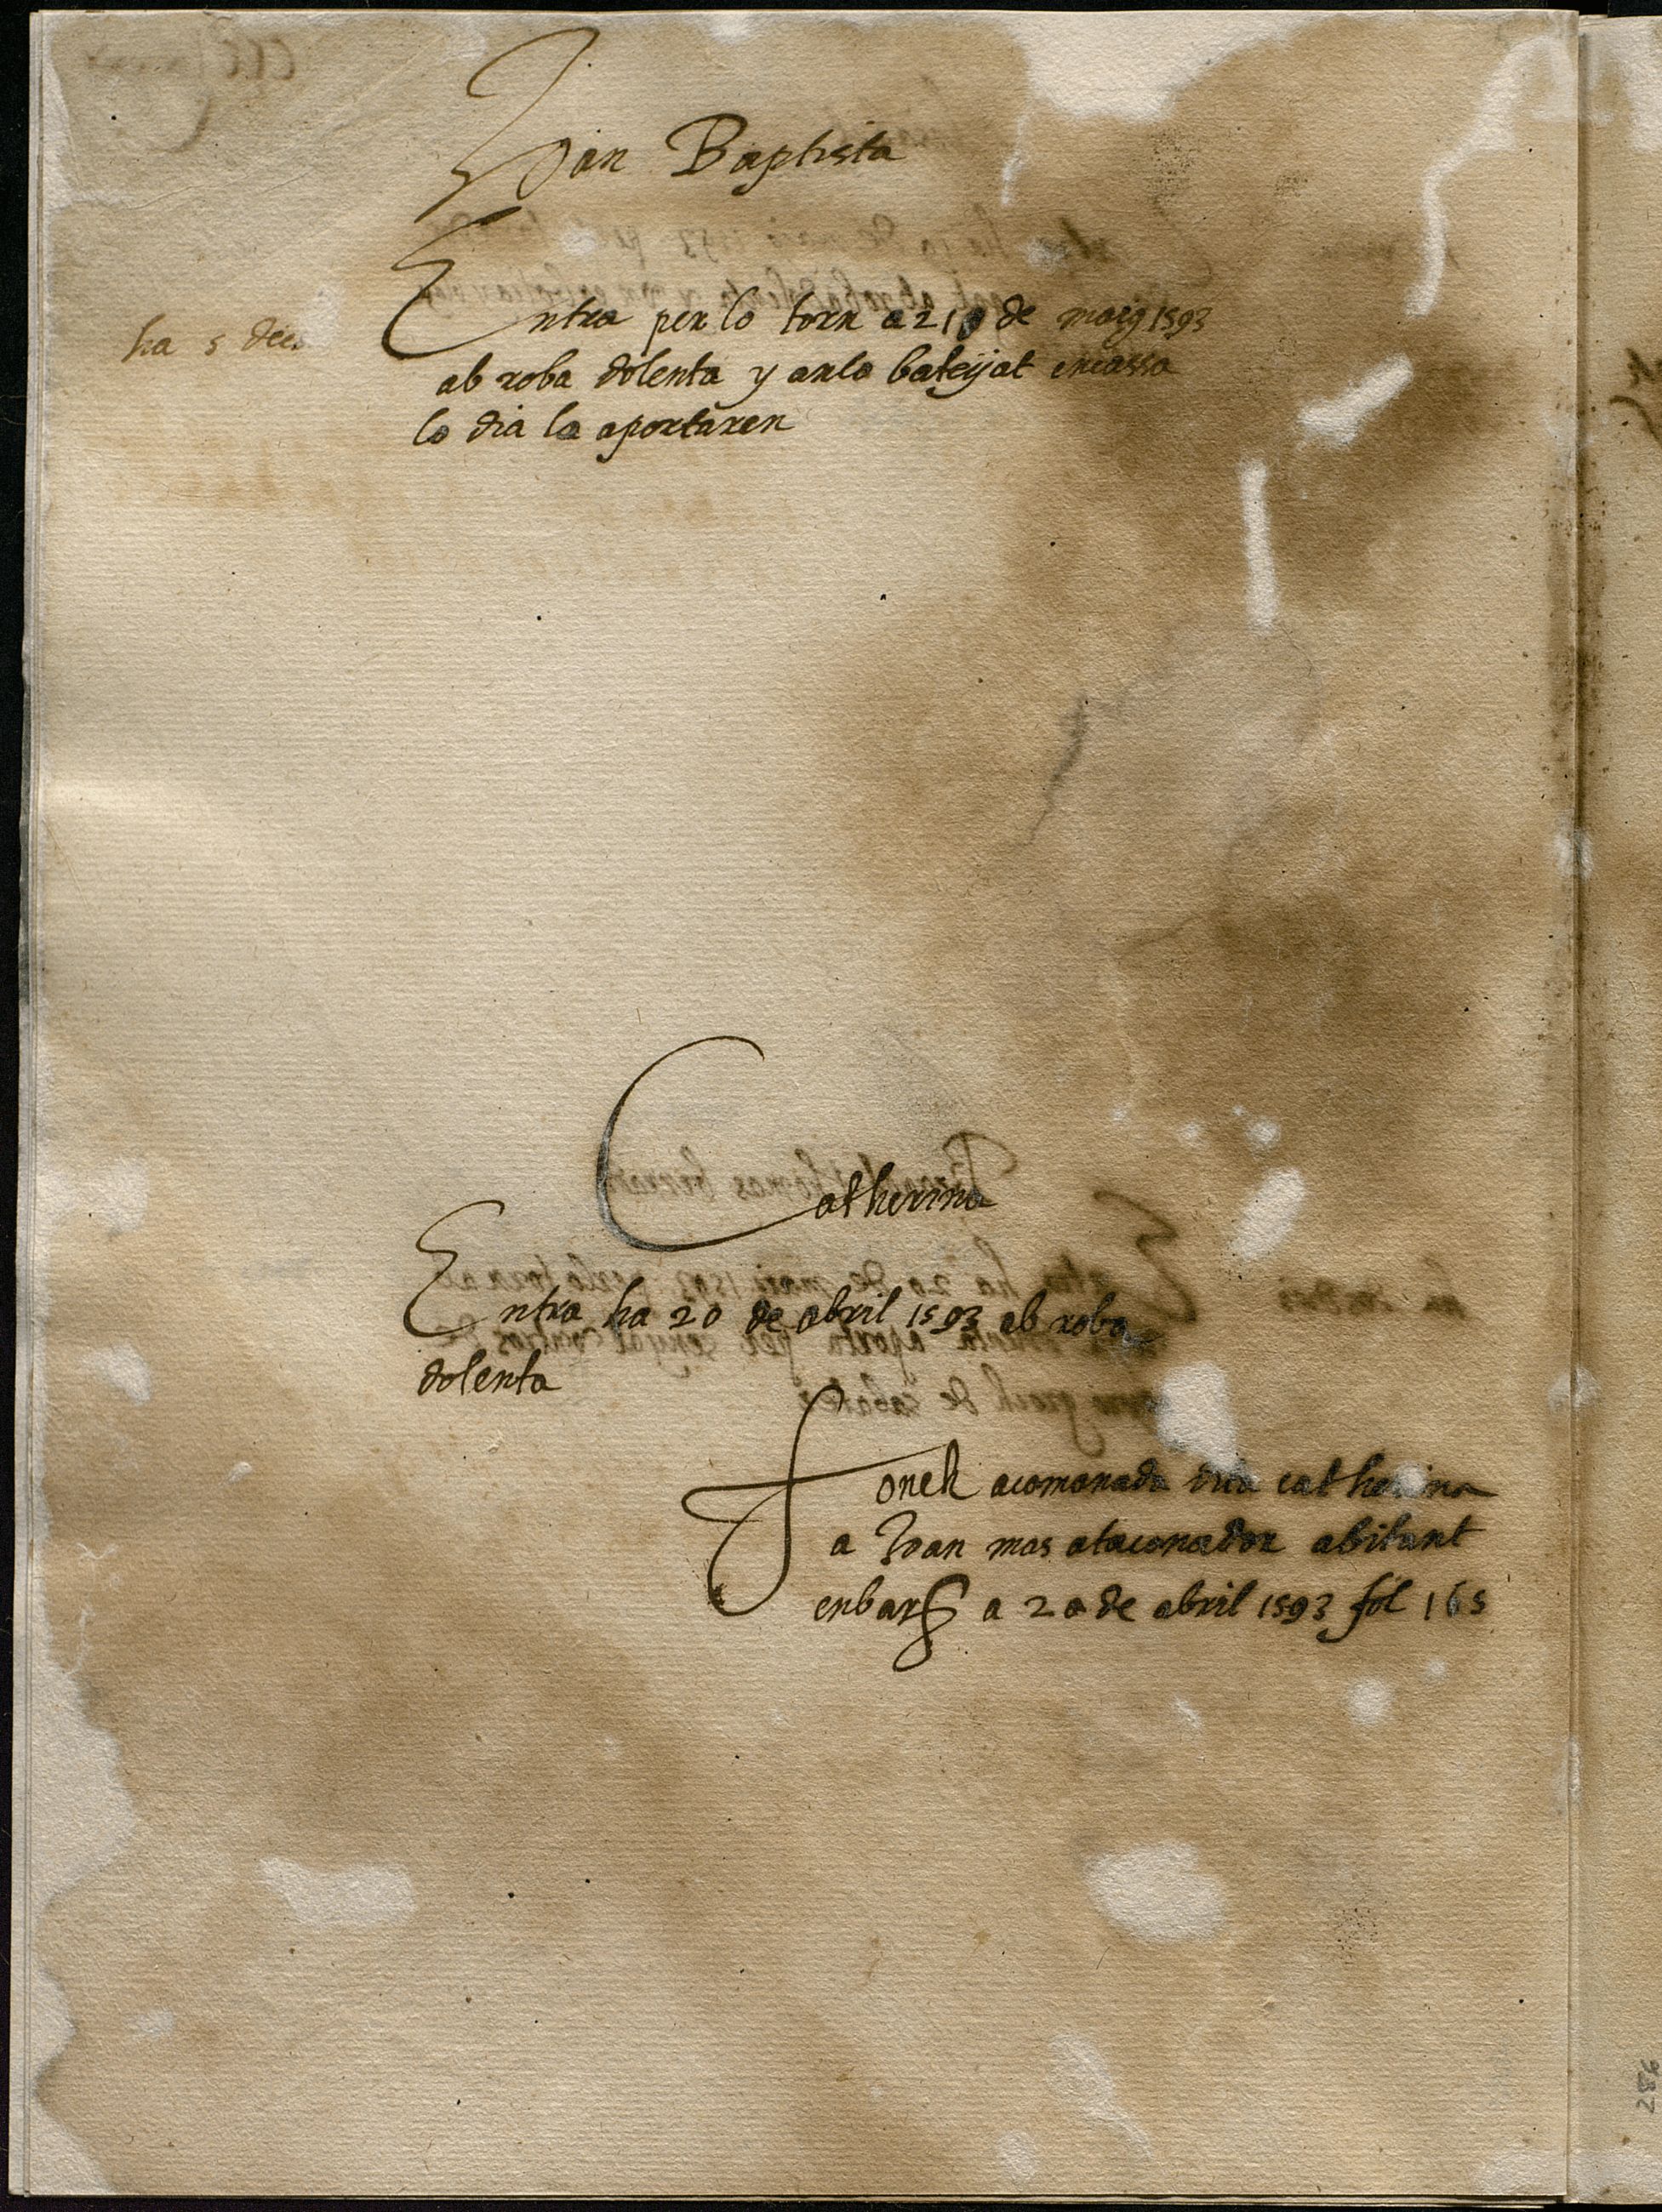 Joan Baptista
Entra per lo torn a 21 de maig 1593
ha 5 de
ab roba dolenta y anla bateyjat encassa
lo dia la aportaren
Catherina
Entra ha 20 de abril 1593 ab roba
dolenta
Fonch acomanada dita catherina
a Joan mas ataconador abitant
en bar^a a 20 de abril 1593 fol 165
256